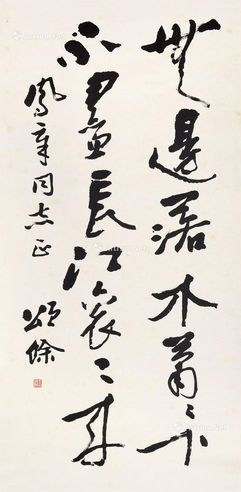 無邊落木蕭〻下
不盡長江滾〻來
鳳章同志正
頌餘